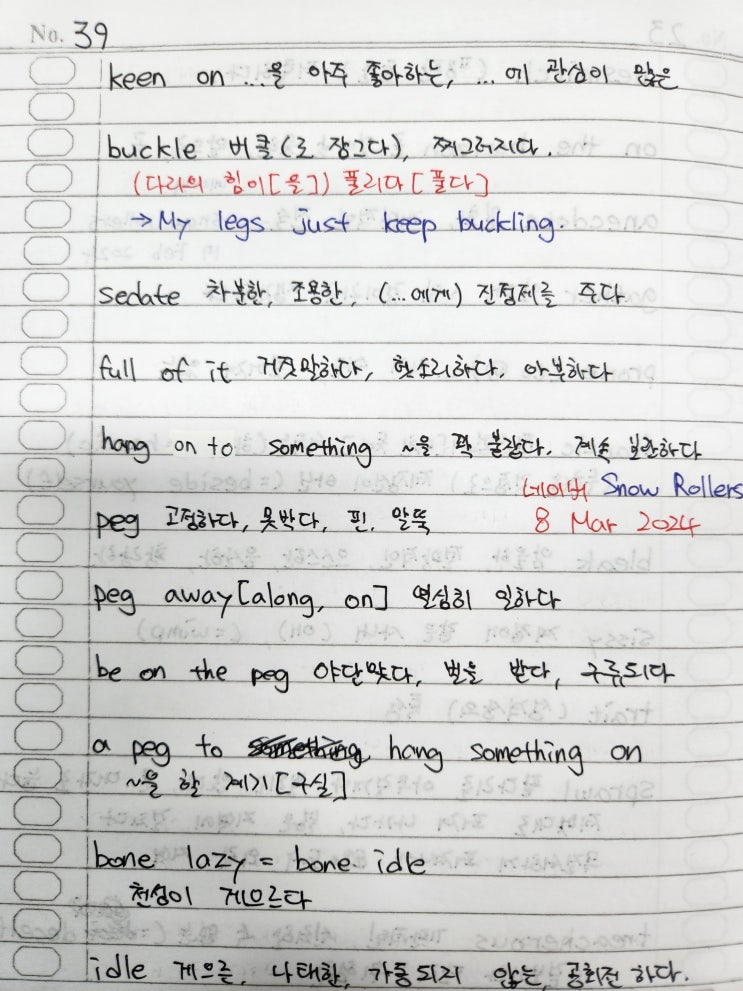 No. 39
keen on ...을 아주 좋아하는, ... 에 관심이 많은
buckle 버클(로 잠그다), 찌그러지다.
(다리의 힘이[을]) 풀리다[풀다]
→ My legs just keep buckling.
sedate 차분한, 조용한, (...에게) 진정제를 주다
full of it 거짓말하다, 헛소리하다. 아부하다
hang on to something ~을 꽉 붙잡다. 계속 보관하다
네이버 Snow Rollers
peg 고정하다, 못박다, 핀, 말뚝
8 Mar 2024
peg away[along, on] 열심히 일하다
be on the peg 야단맞다, 벌을 받다, 구류되다
a peg to hang something on
~을 할 계기[구실]
bone lazy = bone idle
천성이 게으르다
idle 게으른, 나태한, 가동되지 않는, 공회전 하다.